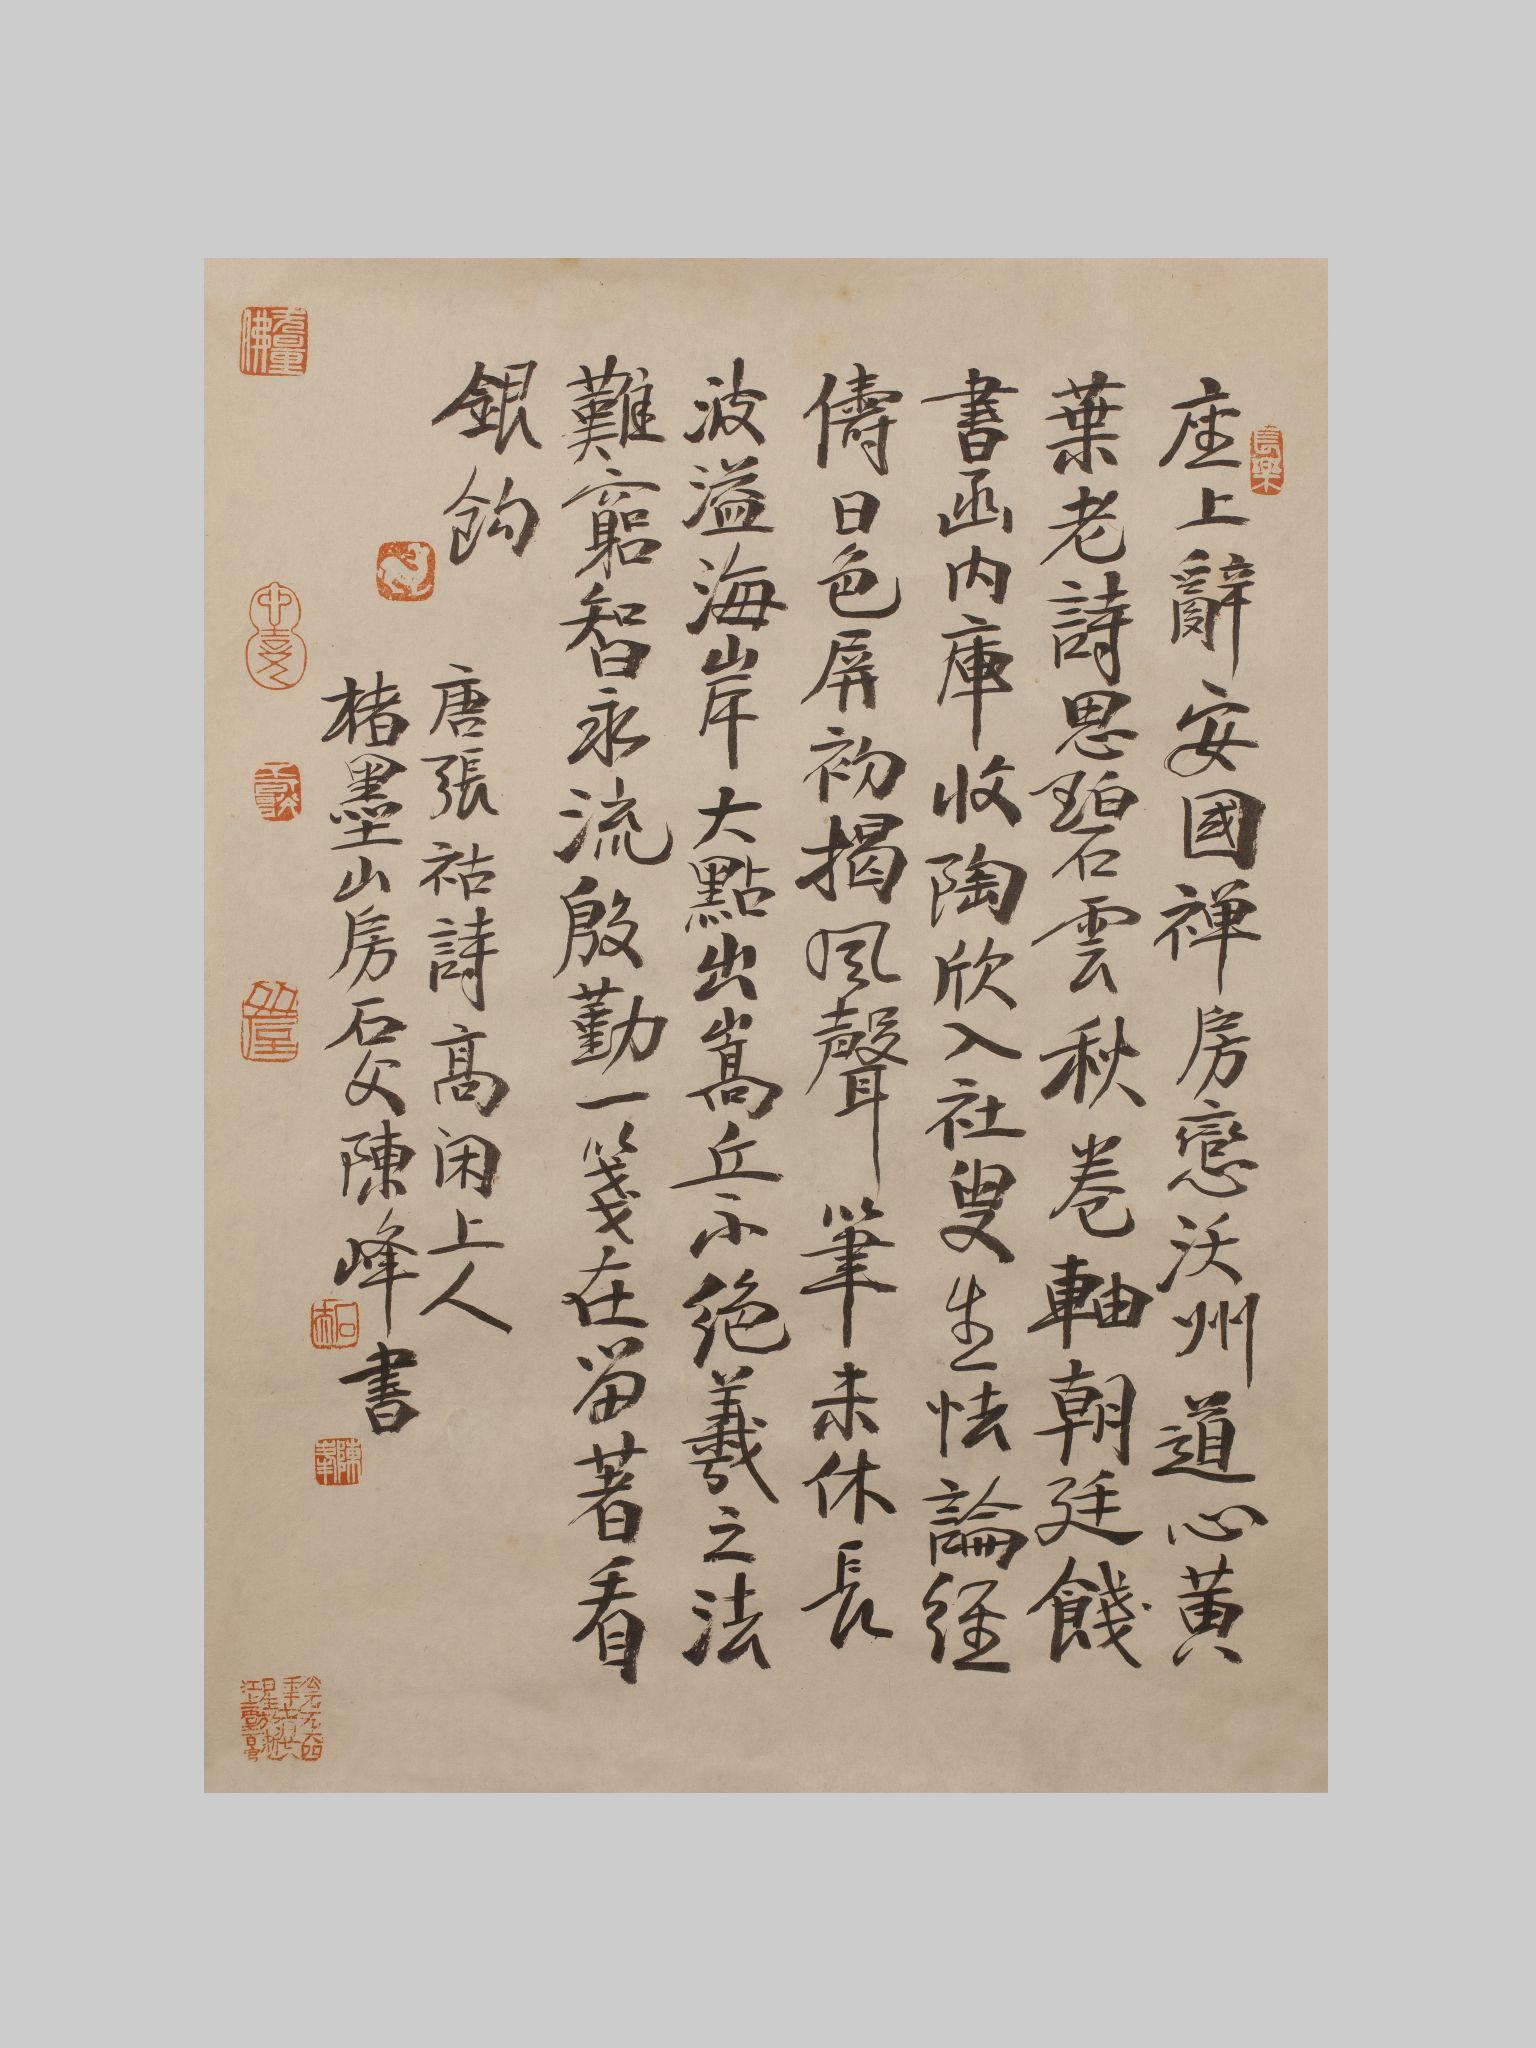 座上辭安國禅房戀沃州道心黃
葉老詩思碧雲秋卷軸朝廷餞
書函内庫收陶欣入社叟生怯論經
儔日色屏初揭風聲筆未休長
波溢海岸大點出嵩丘不絕羲之法
難窮智永流殷勤一箋在留著看
銀鈎
唐張祜詩高闲上人
楮墨山房石父陳峰書
長樂
中意
石
陳峰